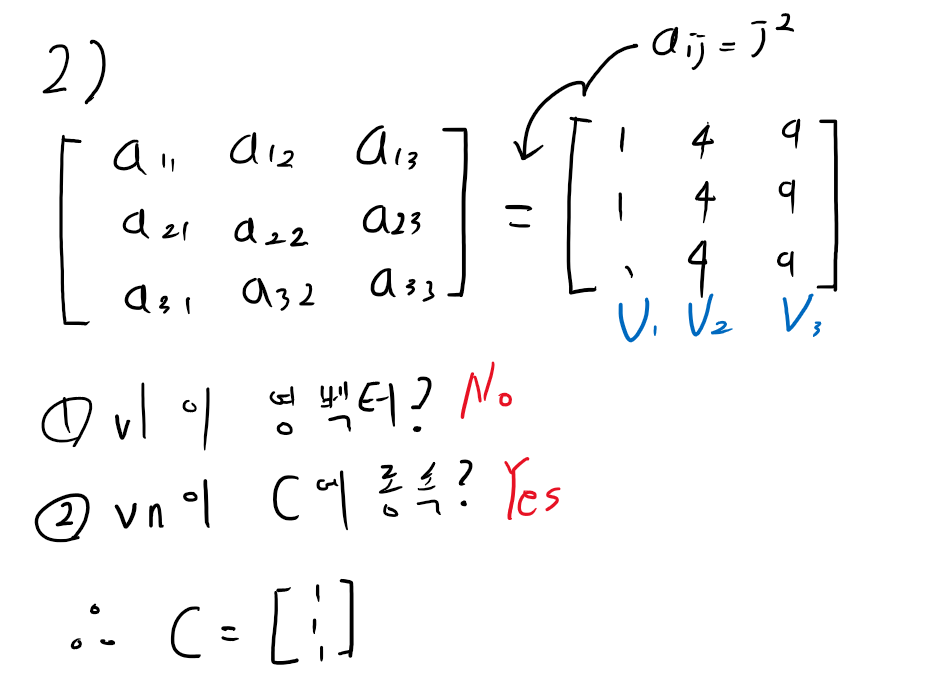 2)
a_ij = j²
[a₁₁ a₁₂ a₁₃] = [1 4 9]
[a₂₁ a₂₂ a₂₃] [1 4 9]
[a₃₁ a₃₂ a₃₃] [1 4 9]
V₁ V₂ V₃
① v1이 영벡터? No
② vn이 C에 종속? Yes
∴ C = [1
1
1]